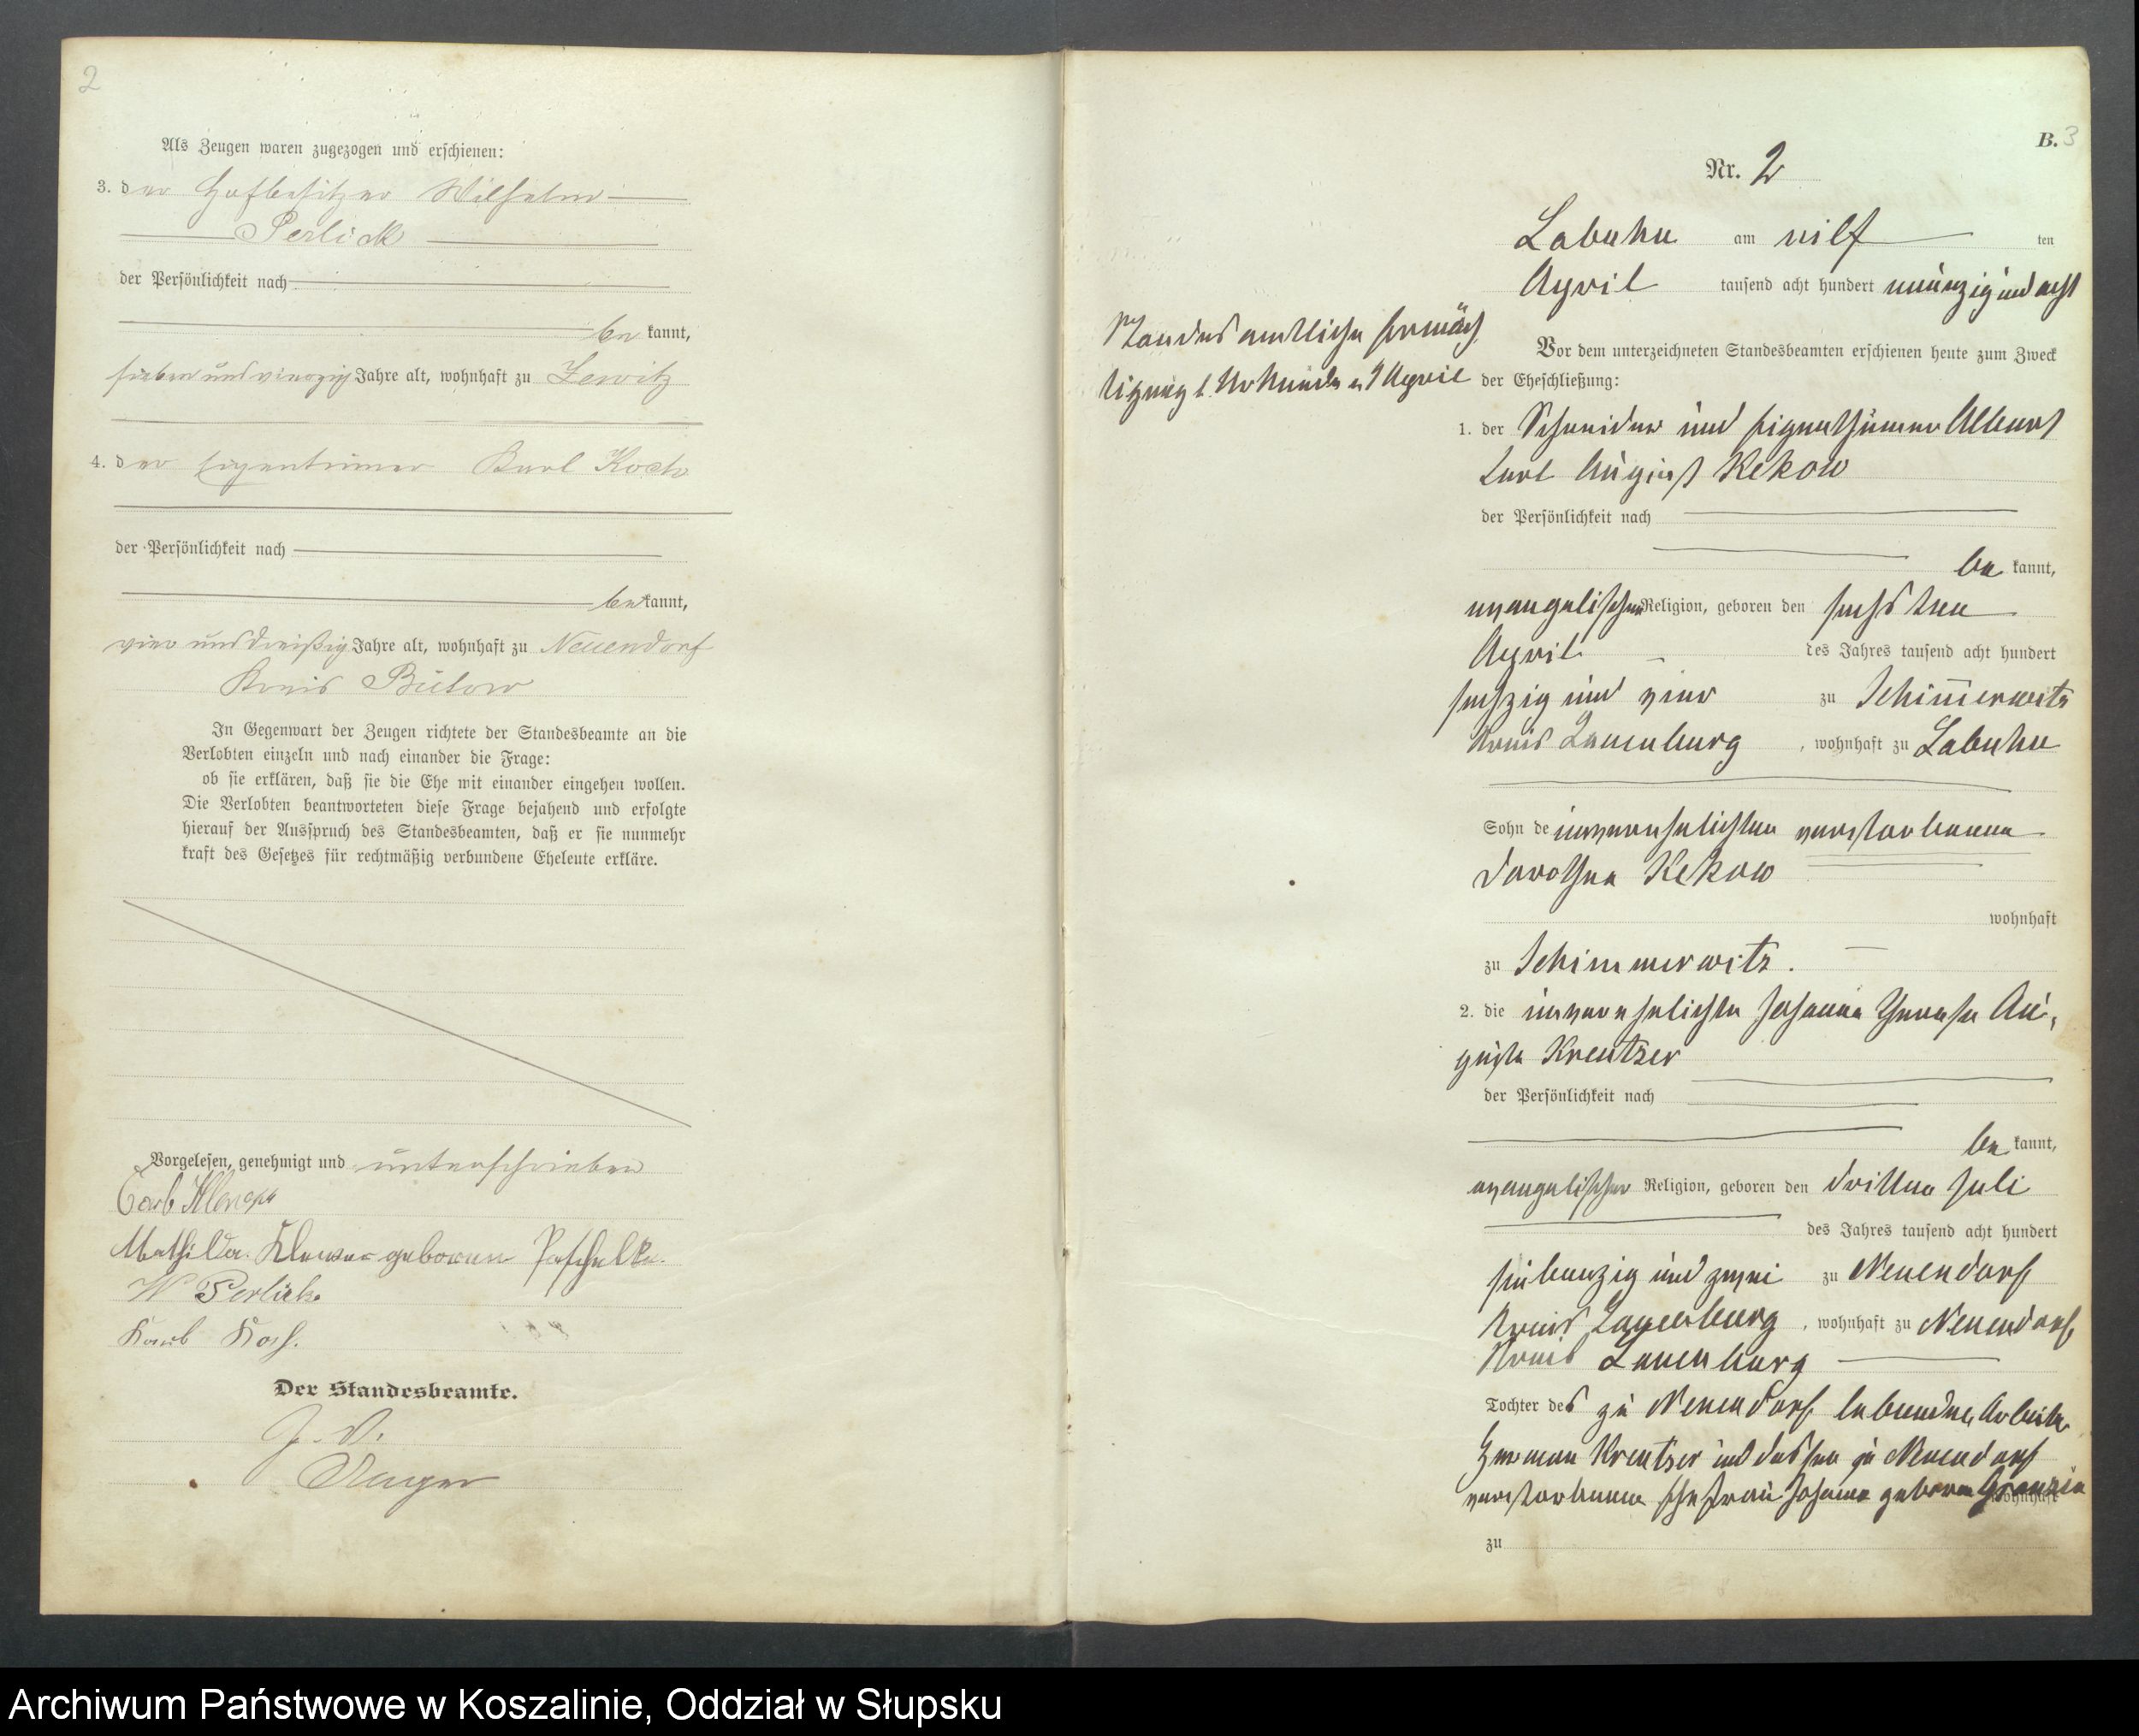 2
Als Zeugen waren zugezogen und erschienen:
3. der Hofbesitzer Wilhelm
Perlick
der Persönlichkeit nach
be kannt,
sieben und vierzig Jahre alt, wohnhaft zu Zewitz
4. der Eigentümer Karl Koch
der Persönlichkeit nach
be kannt,
vier und dreißig Jahre alt, wohnhaft zu Neuendorf
Kreis Bütow
In Gegenwart der Zeugen richtete der Standesbeamte an die
Verlobten einzeln und nach einander die Frage:
ob sie erklären, daß sie die Ehe mit einander eingehen wollen.
Die Verlobten beantworteten diese Frage bejahend und erfolgte
hierauf der Ausspruch des Standesbeamten, daß er sie nunmehr
kraft des Gesetzes für rechtmäßig verbundene Eheleute erkläre.
Vorgelesen, genehmigt und unterschrieben
Carl
Mathilde geboren
W Perlick
Karl Koch.
Der Standesbeamte.
J. V.
B. 3
Nr. 2
Labuhn am eilf ten
April tausend acht hundert neunzig und acht
Standesamtliche Ermäch
tigung l. Urkunde v. 9 April
Vor dem unterzeichneten Standesbeamten erschienen heute zum Zweck
der Eheschließung:
1. der Schneider und Eigenthümer Albert
Carl August Kekow
der Persönlichkeit nach
be kannt,
evangelischen Religion, geboren den sechsten
April des Jahres tausend acht hundert
sechzig und vier zu Schimmerwitz
Kreis Lauenburg, wohnhaft zu Labuhn
Sohn de unverehelichten verstorbenen
Dorothea Kekow
wohnhaft
zu Schimmerwitz.
2. die unverehelichte Johanna Therese Au-
guste Kreutzer
der Persönlichkeit nach
be kannt,
evangelischer Religion, geboren den dritten Juli
des Jahres tausend acht hundert
siebenzig und zwei zu Neuendorf
Kreis Lauenburg, wohnhaft zu Neuendorf
Kreis Lauenburg
Tochter des zu Neuendorf lebenden Arbeiter
Herman Kreutzer und dessen zu Neuendorf
verstorbenen Ehefrau Johanna geboren Granzin
wohnhaft
zu
Archiwum Państwowe w Koszalinie, Oddział w Słupsku